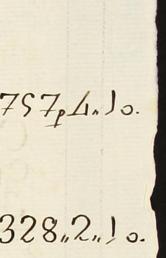 757p4"10.
328"2"10.